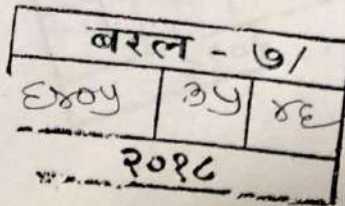 बरल - ७/
६४०५ ३५ ४६
२०१८